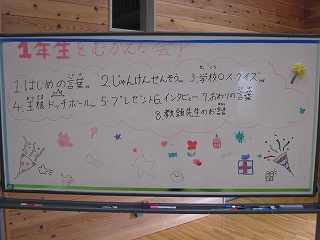 1年生をむかえる会!
1.はじめの言葉 2.じゃんけんせんそう 3.学校○×クイズ
4.王様ドッチボール 5.プレゼント 6.インタビュー 7.おわりの言葉
8.教頭先生のお話